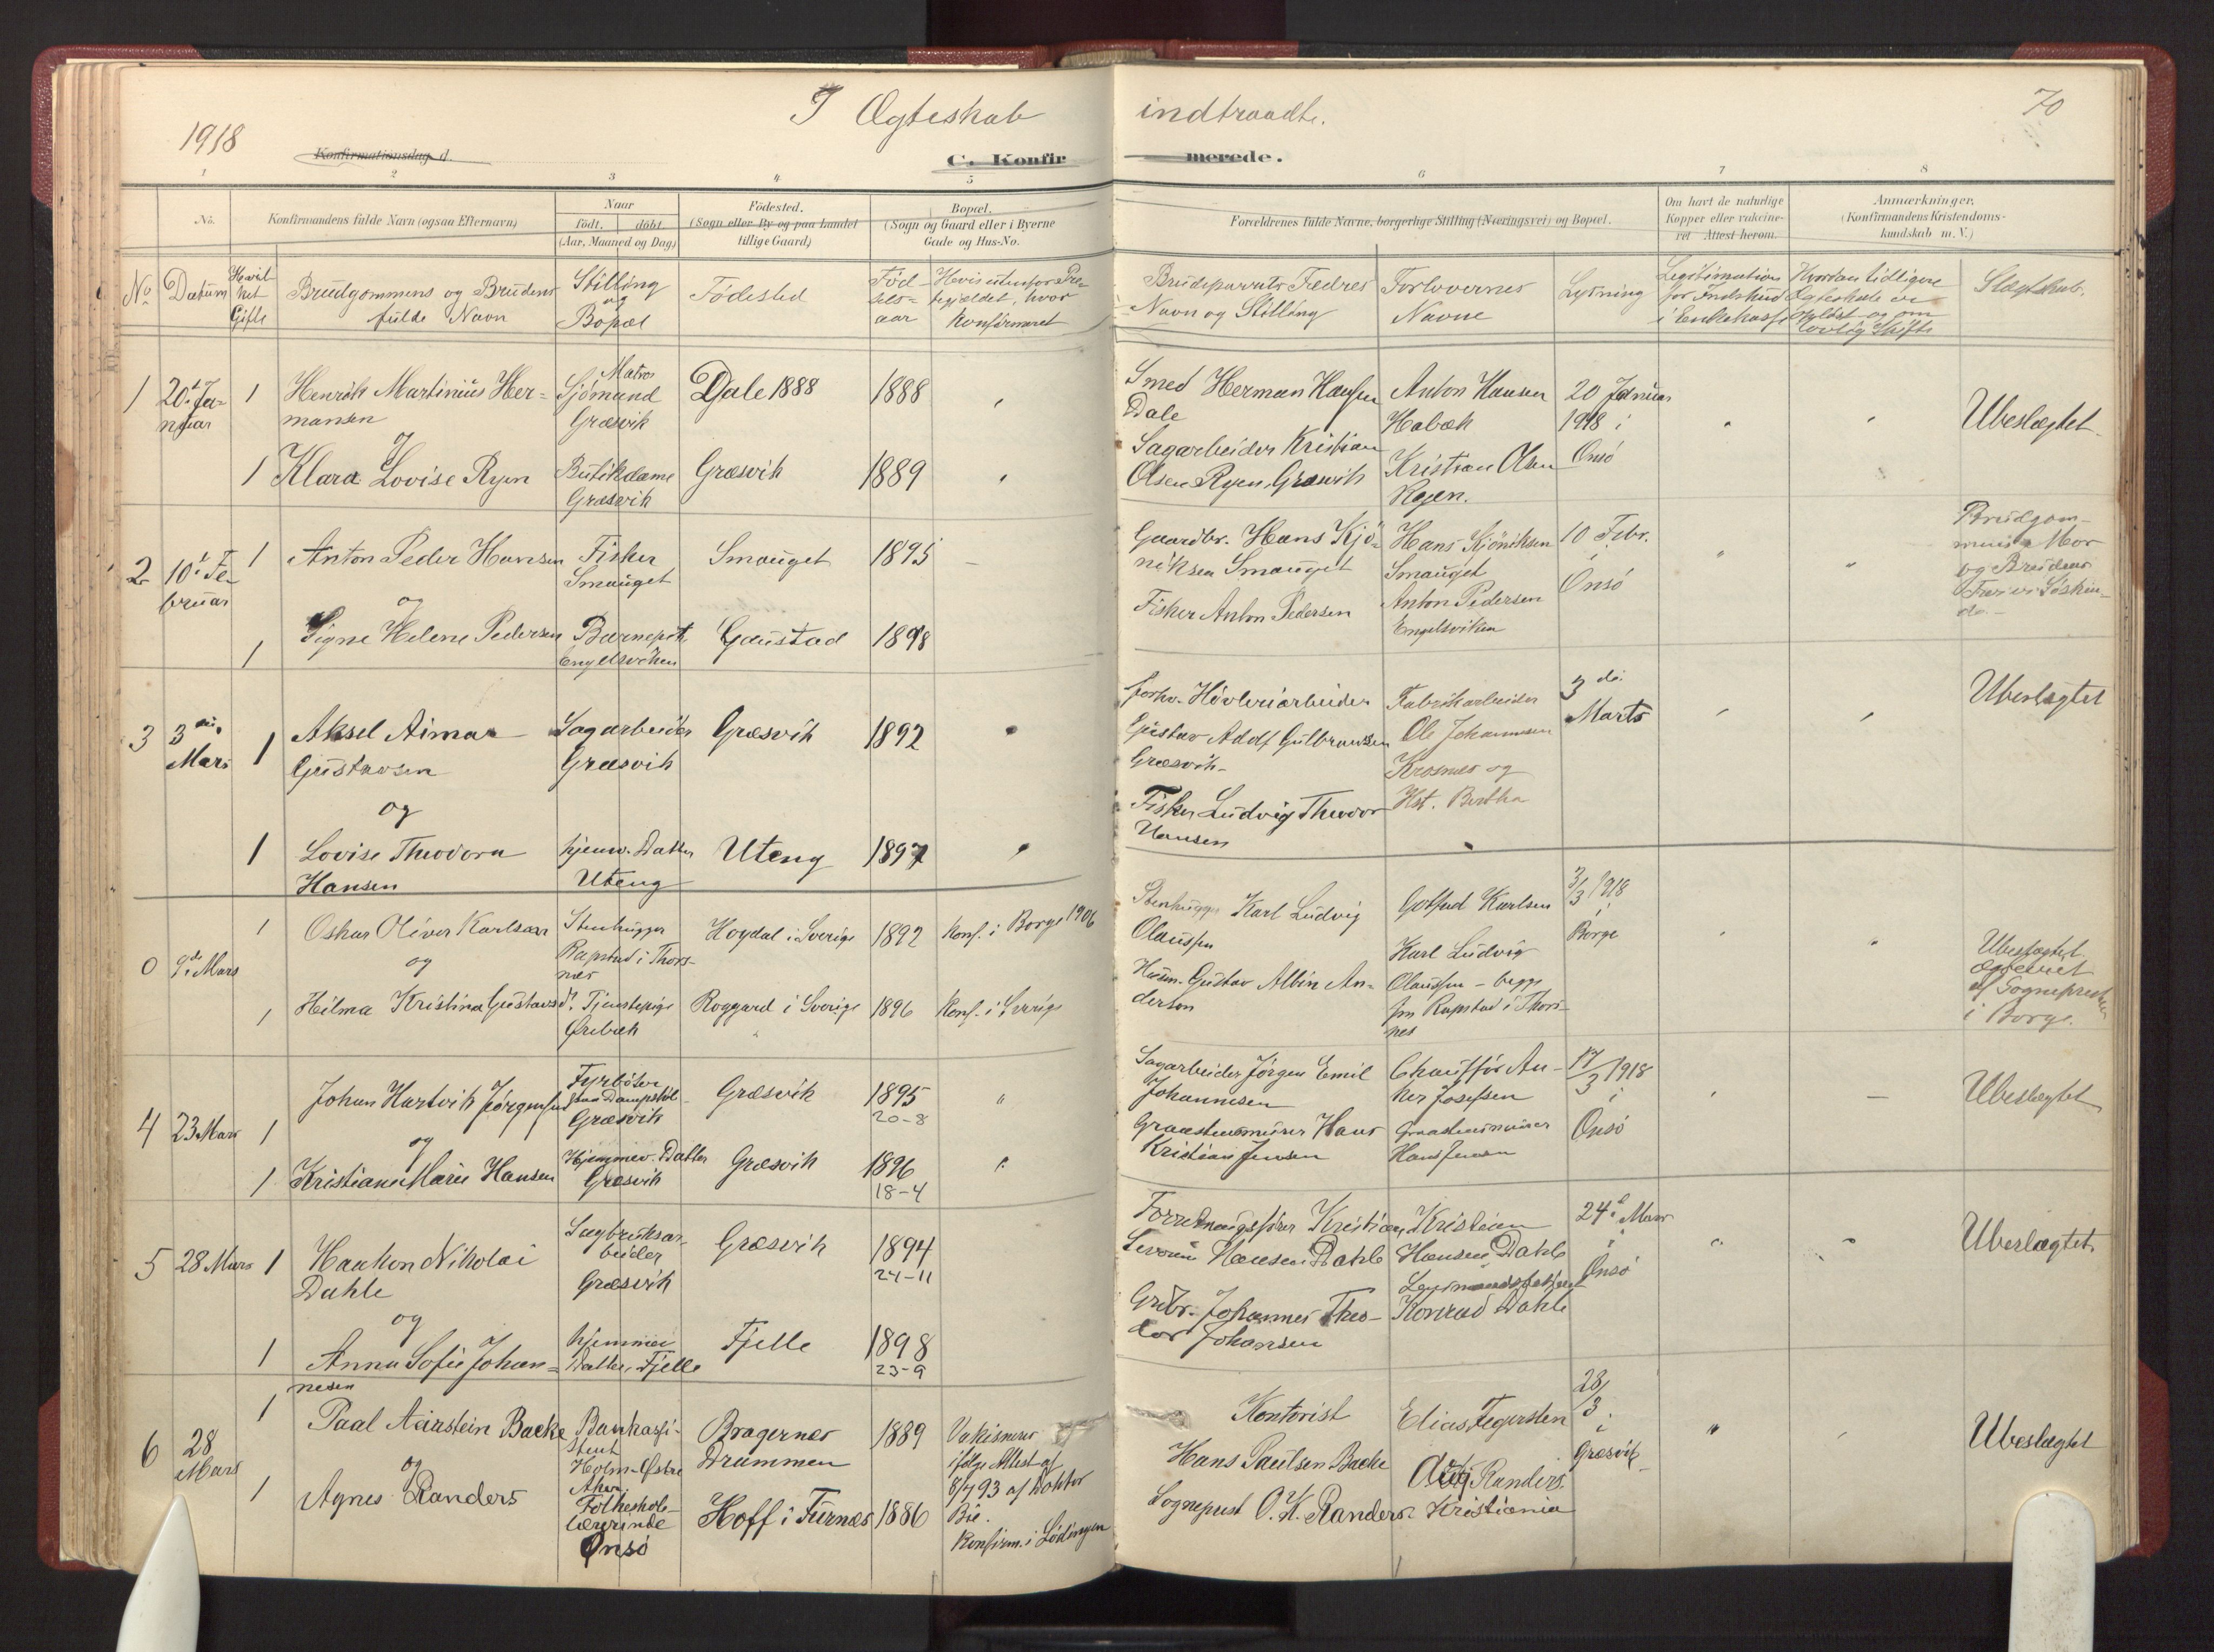 I Ægteskab indtraadte. 70
1918
Konfirmationsdag d.
C. Konfirmerede.
1 2 3 4 5 6 7 8
No. Konfirmandens fulde Navn (ogsaa Efternavn)
Naar
Født. døbt.
(Aar, Maaned og Dag)
Fødested.
(Sogn eller By og paa Landet
tillige Gaard)
Bopæl.
(Sogn og Gaard eller i Byerne
Gade og Hus-No.
Forældrenes fulde Navne, borgerlige Stilling (Næringsvei) og Bopæl.
Om havt de naturlige
Kopper eller vakcine-
ret Attest herom.
Anmærkninger.
(Konfirmandens Kristendoms-
kundskab m. V.)
No Datum
Gifte
Brudgommens og Brudens
fulde Navn
Stilling
og
Bopæl
Fødested
Fød-
sels-
aar
Hvis utenfor Præ-
stegjældet, hvor
Konfirmeret
Brudeparrets Fædres
Navn og Stilling
Forlovernes
Navne
Lysning
Legitimation
for Indskud
i Enkekasse
Hvordan tidligere
Ægteskab er
opløst og om
lovlig Skifte
Slægtskab.
1 20d Ja-
nuar
1 Henrik Martinius Her-
mansen
og
Matros
Sjömand
Græsvik
Dale 1888
1888
Smed Herman Hansen
Dale
Anton Hansen
Habæk
20 Januar
1918 i
Onsö
Ubeslægtet
1 Klara Lovise Ryen
Butikdame
Græsvik
Græsvik
1889
Sagarbeider Kristian
Olsen Ryen, Græsvik
Kristian Olsen
Ryen.
2 10d Fe-
bruar
1 Anton Peder Hansen
og
Fisker
Smauget
Smauget
1895
Gaardbr. Hans Kjö-
niksen Smauget
Hans Kjöniksen
Smauget
10 Febr.
i
Onsö
Brudgom-
mens Mor
og Brudens
Far er Söskin-
de.
1 Signe Helene Pedersen
Barnepike
Engelsviken
Gaustad
1898
Fisker Anton Pedersen
Anton Pedersen
Engelsviken
3 3die
Mars
1 Aksel Aimar
Gustavsen
og
Sagarbeider
Græsvik
Græsvik
1892
forhv. Hövleriarbeider
Gustav Adolf Gulbrandsen
Græsvik
Fabrikarbeider
Ole Johannesen
Krosnes og
Hst. Bertha
3die
Marts
Ubeslægtet
1 Lovise Theodora
Hansen
hjemv. Datter
Uteng
Uteng
1897
Fisker Ludvig Theodor
Hansen
0 9de Mars
1 Oskar Oliver Karlsen
og
Stenhugger
Rapstad i Thors-
næs
Hogdal i Sverige
1892
Konf. i Borge 1906
Stenhugger Karl Ludvig
Olaussen
Gotfred Karlsen
3/3 1918
i
Borge
Ubeslægtet
af Sogneprest
i Borge.
1 Hilma Kristina Gustavsd.
Tjenestepige
Ørebæk
Roggard i Sverige
1896
Konf. i Sverige
Husm. Gustav Albin An-
derson
Karl Ludvig
Olaussen - begge
fra Rapstad i Thors-
nes
4 23 Mars
1 Johan Hartvik Jörgensen
og
Fyrböter
paa Dampskib
Græsvik
Græsvik
1895
20-8
Sagarbeider Jörgen Emil
Johannesen
Chaufför An-
ker Josefsen
17/3 1918
i
Onsö
Ubeslægtet
1 Kristiane Marie Hansen
Hjemmev. Datter
Græsvik
Græsvik
1896
18-4
Graastensmurer Hans
Kristian Jensen
Graastensmurer
Hans Jensen
5 28 Mars
1 Haakon Nikolai
Dahle
og
Sagbruksar-
beider
Græsvik
Græsvik
1894
24-11
Forretningsförer Kristian
Severin Hansen Dahle
Kristian
Hansen Dahle
24d Mars
i
Onsö
Ubeslægtet
1 Anna Sofie Johan-
nesen
hjemmev.
Datter, Fjelle
Fjelle
1898
23-9
Grdbr. Johannes Theo-
dor Johansen
Konrad Dahle
6 28
Mars
1 Paal Aarstein Backe
og
Bankassi-
stent
Holm-Østre
Aker
Bragernes
Drammen
1889
Vakcineret
ifölge Attest af
8/7 93 af Doktor
Bie.
Kontorist
Hans Paulsen Backe
Elias Fegersten
28/3
i
Græsvik
Ubeslægtet
1 Agnes Randers
Folkeskole-
lærerinde
Onsö
Hoff i Furnes
1886
Konfirm. i Lödingen
Sogneprest O. K. Randers
Aug Randers
Kristiania